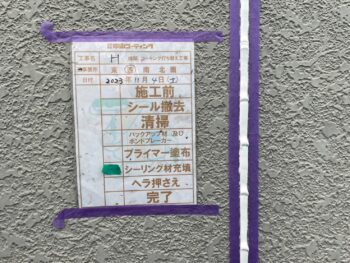 工事名 H 様邸 シーリング打ち替え工事
東 西 南 北 面
日付 2023年11月4日(土)
施工前
シール撤去
清掃
バックアップ材 及び
ボンドブレーカー
プライマー塗布
シーリング材充填
ヘラ押さえ
完了